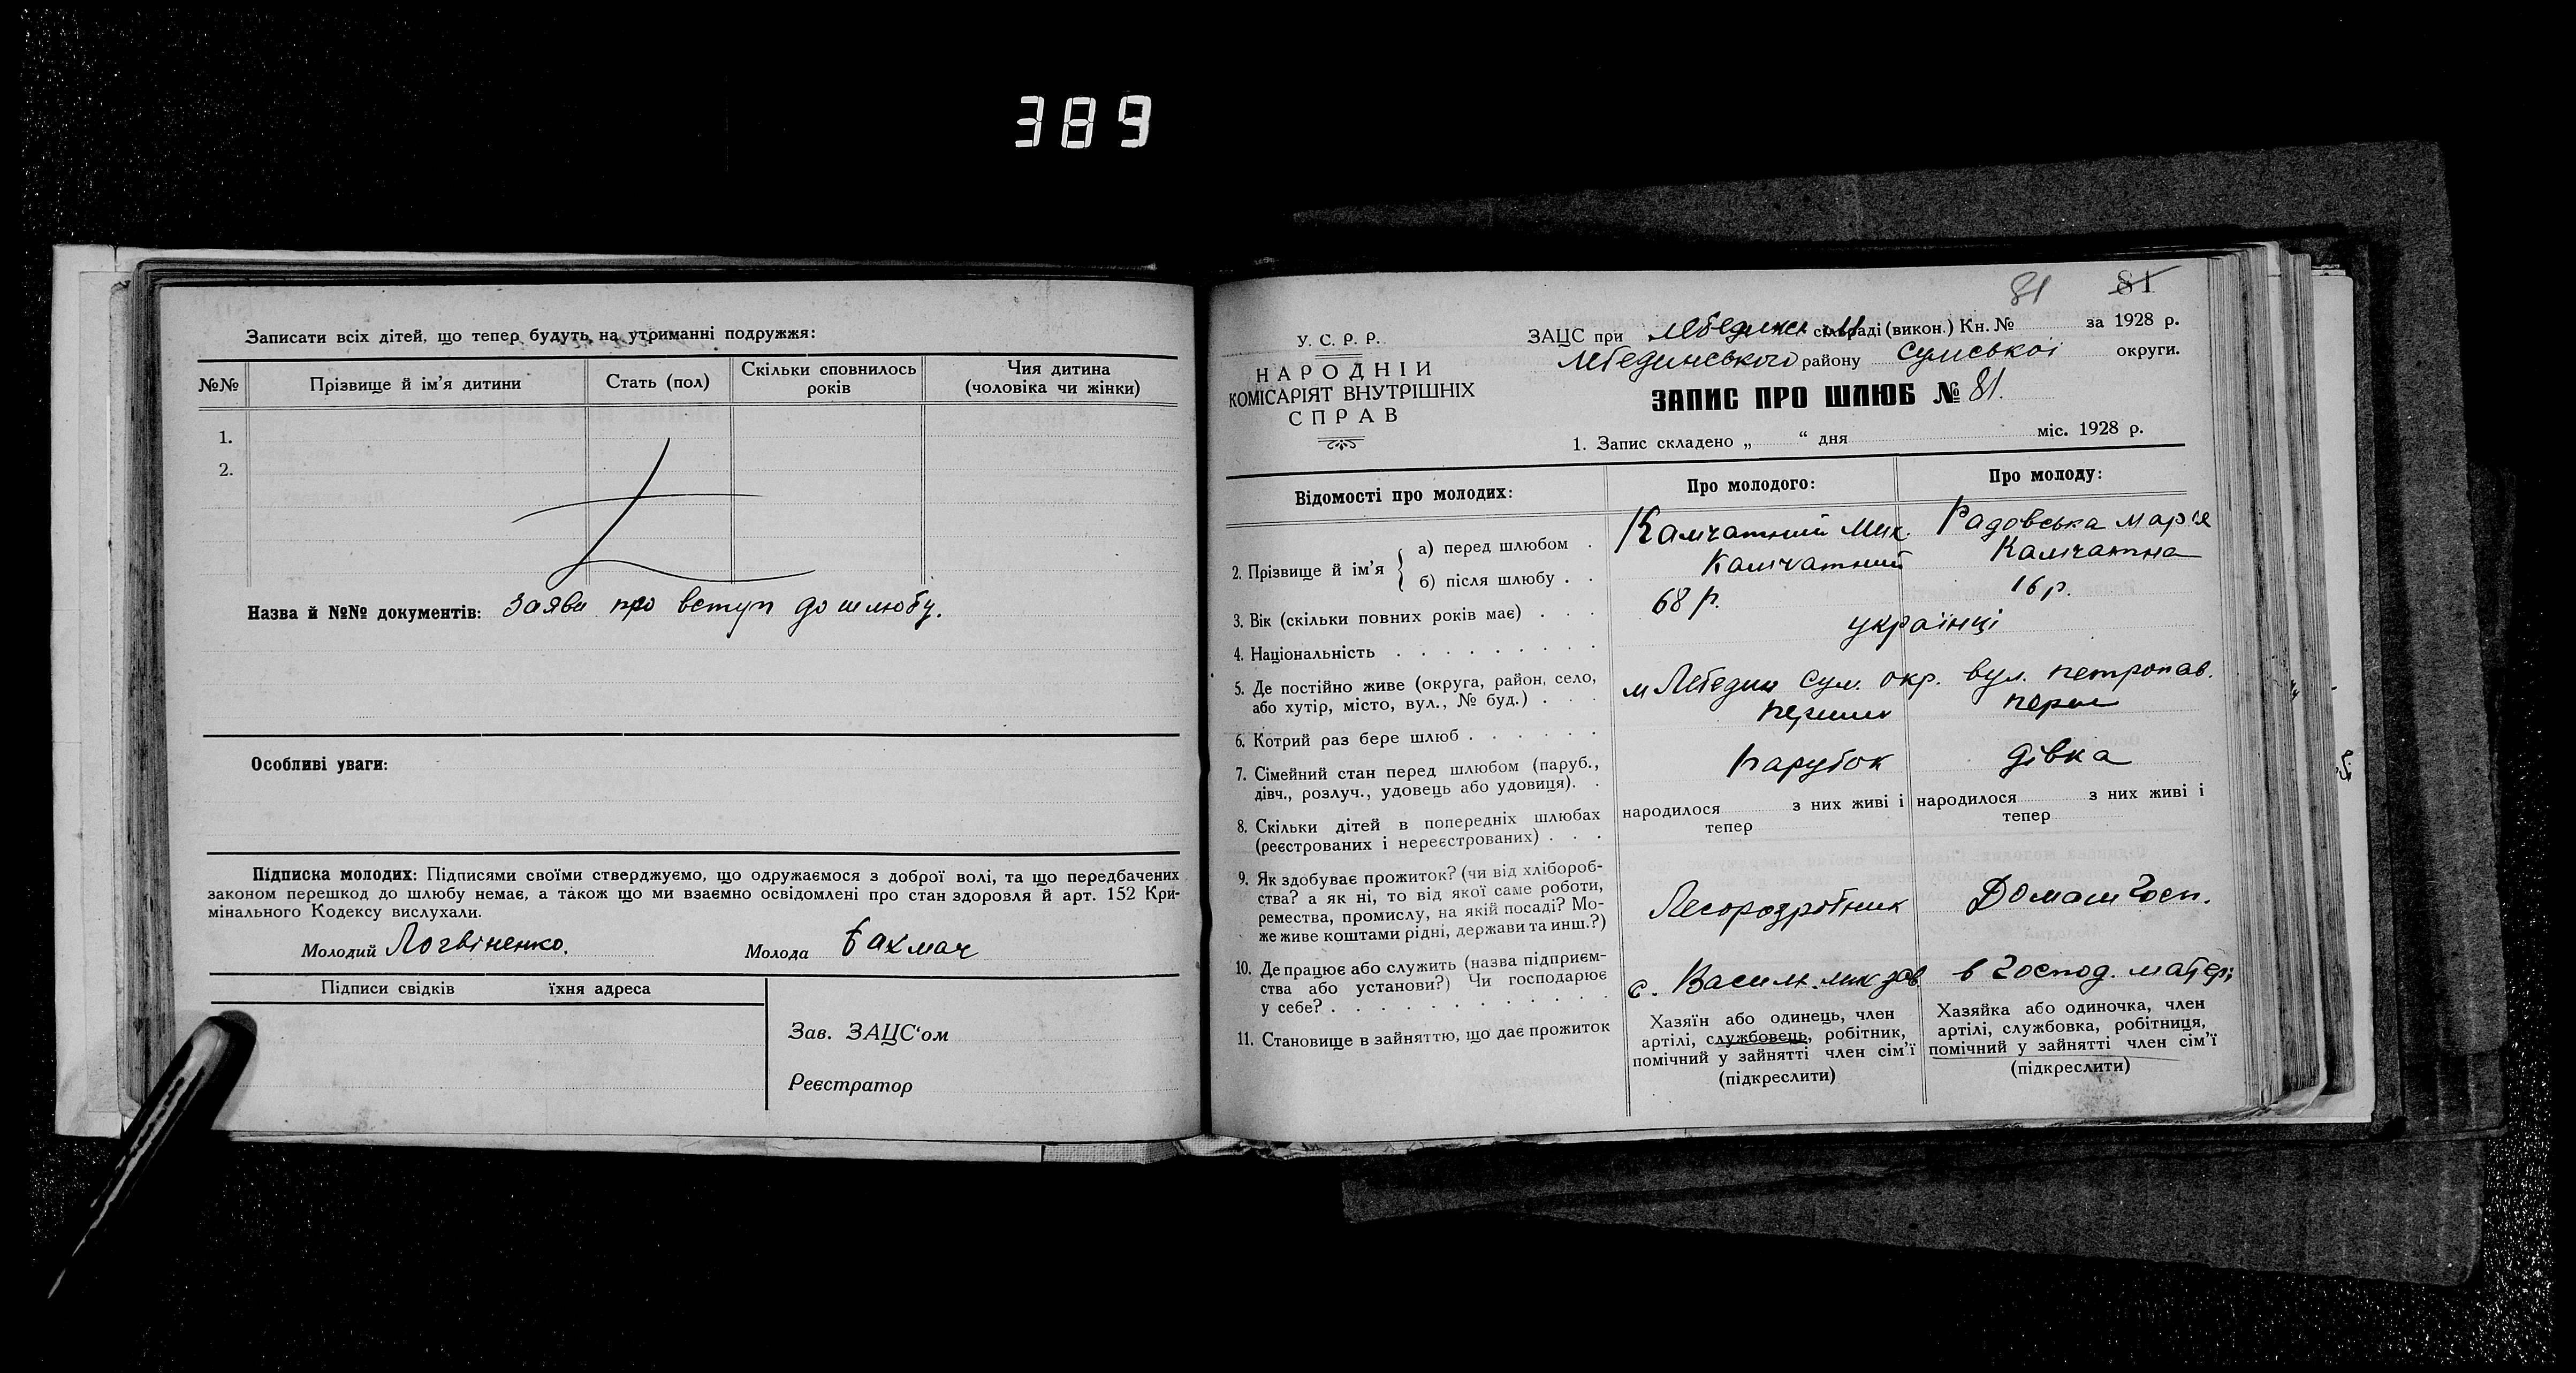 389
Записати всіх дітей, що тепер будуть на утриманні подружжя:
№№ Прізвище й ім'я дитини Стать (пол) Скільки сповнилось років Чия дитина (чоловіка чи жінки)
1.
2.
Назва й №№ документів: Заяви про вступ до шлюбу.
Особливі уваги:
Підписка молодих: Підписями своїми стверджуємо, що одружаємося з доброї волі, та що передбачених
законом перешкод до шлюбу немає, а також що ми взаємно освідомлені про стан здоровля й арт. 152 Кри-
мінального Кодексу вислухали.
Молодий Логвіненко. Молода Бакмач
Підписи свідків їхня адреса
Зав. ЗАЦС'ом
Реєстратор
81 81
У. С. Р. Р.
НАРОДНІЙ
КОМІСАРІЯТ ВНУТРІШНІХ
СПРАВ
ЗАЦС при сільраді (викон.) Кн. № за 1928 р.
Лебединського району Сумської округи.
ЗАПИС ПРО ШЛЮБ № 81.
1. Запис складено „ “ дня міс. 1928 р.
Відомості про молодих: Про молодого: Про молоду:
2. Прізвище й ім'я
а) перед шлюбом . Камчатний Мик. Радовська Марія
б) після шлюбу . . Камчатний Камчатна
3. Вік (скільки повних років має) . . . 68 р. 16 р.
4. Національність . . . . . . . . . українці
5. Де постійно живе (округа, район, село,
або хутір, місто, вул., № буд.) . . . м Лебедин Сум. окр. вул. Петропав.
6. Котрий раз бере шлюб . . . . . . перший перш
7. Сімейний стан перед шлюбом (паруб.,
дівч., розлуч., удовець або удовиця). . парубок дівка
8. Скільки дітей в попередніх шлюбах
(реєстрованих і нереєстрованих) . . .
народилося з них живі і
тепер
народилося з них живі і
тепер
9. Як здобуває прожиток? (чи від хлібороб-
ства? а як ні, то від якої саме роботи,
ремества, промислу, на якій посаді? Мо-
же живе коштами рідні, держави та инш.?)
Лесорозробник Домаш госп.
10. Де працює або служить (назва підприєм-
ства або установи?) Чи господарює
у себе? . . . . . . . . . .
в господ. матері
11. Становище в зайняттю, що дає прожиток
Хазяїн або одинець, член
артілі, службовець, робітник,
помічний у зайнятті член сім'ї
(підкреслити)
Хазяйка або одиночка, член
артілі, службовка, робітниця,
помічний у зайнятті член сім'ї
(підкреслити)